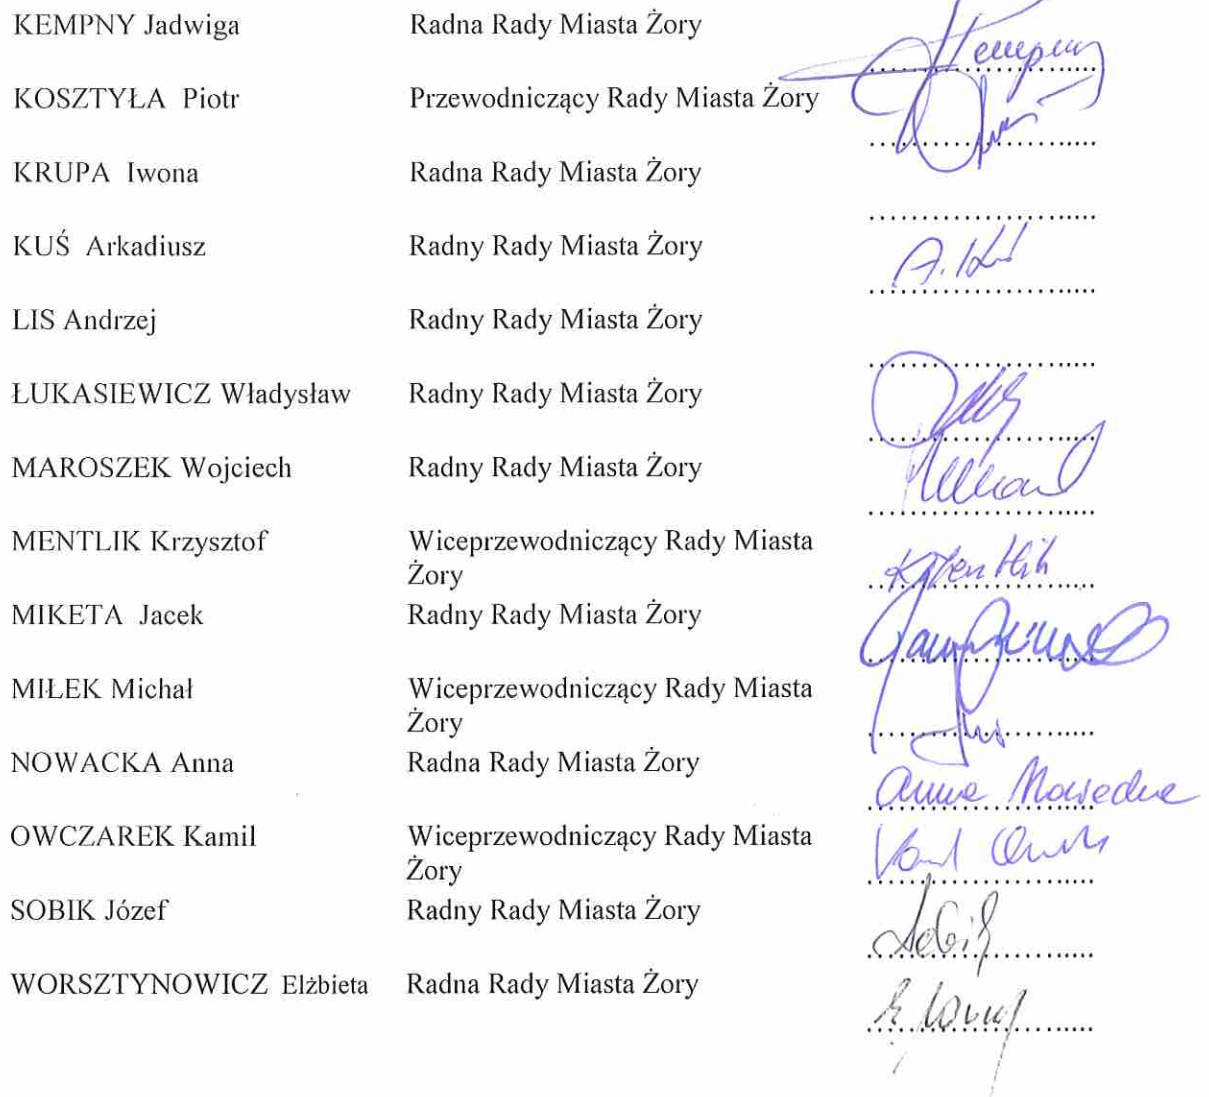 KEMPNY Jadwiga Radna Rady Miasta Żory Kempny
KOSZTYŁA Piotr Przewodniczący Rady Miasta Żory
KRUPA Iwona Radna Rady Miasta Żory
KUŚ Arkadiusz Radny Rady Miasta Żory A. Kuś
LIS Andrzej Radny Rady Miasta Żory
ŁUKASIEWICZ Władysław Radny Rady Miasta Żory
MAROSZEK Wojciech Radny Rady Miasta Żory
MENTLIK Krzysztof Wiceprzewodniczący Rady Miasta K. Mentlik
Żory
MIKETA Jacek Radny Rady Miasta Żory
MIŁEK Michał Wiceprzewodniczący Rady Miasta
Żory
NOWACKA Anna Radna Rady Miasta Żory Anna Nowacka
OWCZAREK Kamil Wiceprzewodniczący Rady Miasta
Żory
SOBIK Józef Radny Rady Miasta Żory Sobik
WORSZTYNOWICZ Elżbieta Radna Rady Miasta Żory